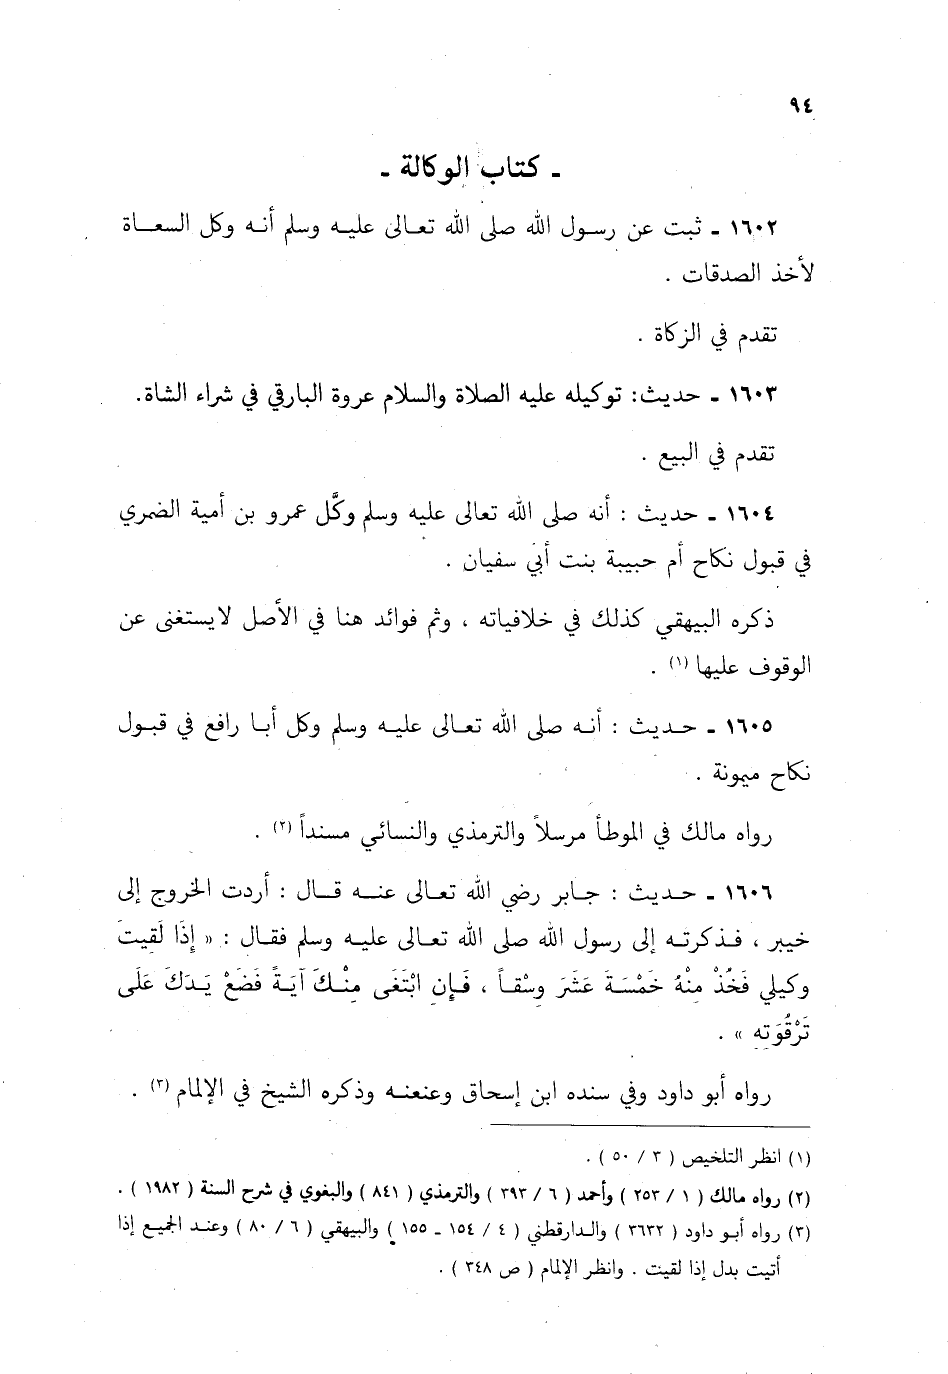 ٩٤
ـ كتاب الوكالة ـ
١٦٠٢ ـ ثبت عن رسول الله صلى الله تعالى عليه وسلم أنه وكل السعاة
لأخذ الصدقات .
تقدم في الزكاة .
١٦٠٣ ـ حديث: توكيله عليه الصلاة والسلام عروة البارقي في شراء الشاة.
تقدم في البيع .
١٦٠٤ ـ حديث : أنه صلى الله تعالى عليه وسلم وكَّل عمرو بن أمية الضمري
في قبول نكاح أم حبيبة بنت أبي سفيان .
ذكره البيهقي كذلك في خلافياته ، وثم فوائد هنا في الأصل لايستغنى عن
الوقوف عليها (١) .
١٦٠٥ ـ حديث : أنه صلى الله تعالى عليه وسلم وكل أبا رافع في قبول
نكاح ميمونة .
رواه مالك في الموطأ مرسلاً والترمذي والنسائي مسنداً (٢) .
١٦٠٦ ـ حديث : جابر رضي الله تعالى عنه قال : أردت الخروج إلى
خيبر ، فذكرته إلى رسول الله صلى الله تعالى عليه وسلم فقال : « إِذَا لَقيتَ
وكيلي فَخُذْ مِنْهُ خَمْسَةَ عَشَرَ وسْقاً ، فَإِن ابْتَغَى مِنْكَ آيَةً فَضَعْ يَدَكَ عَلَى
تَرْقُوَته » .
رواه أبو داود وفي سنده ابن إسحاق وعنعنه وذكره الشيخ في الإلمام (٣) .
(١) انظر التلخيص ( ٣ / ٥٠ ) .
(٢) رواه مالك ( ١ / ٢٥٣ ) وأحمد ( ٦ / ٣٩٣ ) والترمذي ( ٨٤١ ) والبغوي في شرح السنة ( ١٩٨٢ ) .
(٣) رواه أبو داود ( ٣٦٣٢ ) والدارقطني ( ٤ / ١٥٤ ـ ١٥٥ ) والبيهقي ( ٦ / ٨٠ ) وعند الجميع إذا
أتيت بدل إذا لقيت . وانظر الإلمام ( ص ٣٤٨ ) .